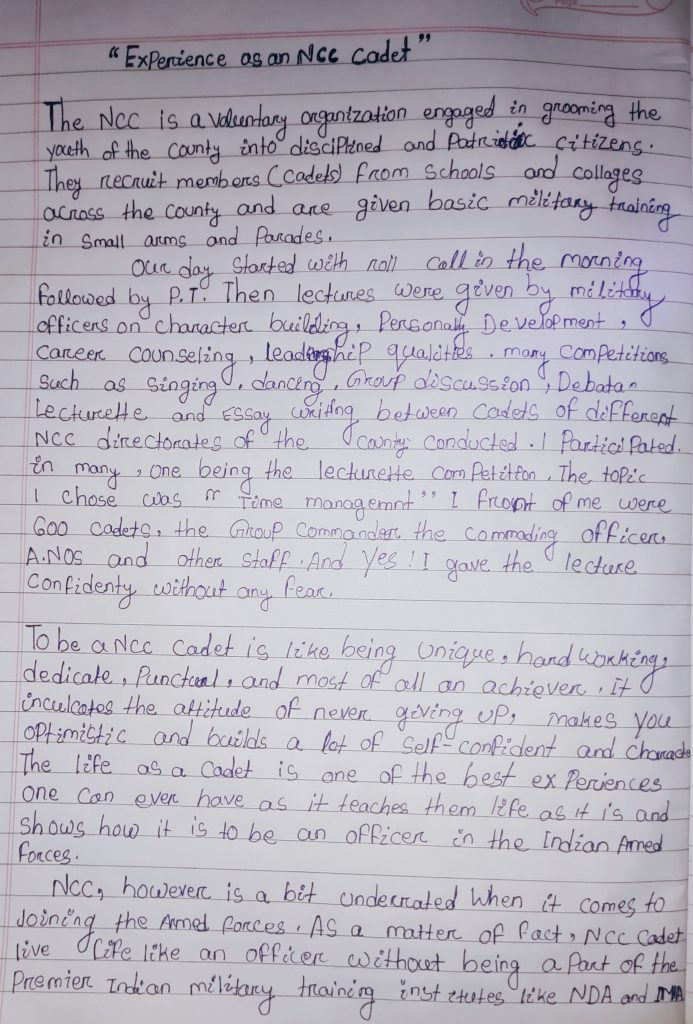 Page
“Experience as an NCC Cadet”
The NCC is a voluntary organization engaged in grooming the
youth of the county into disciplened and Patriotic citizens.
They recruit members (cadets) from schools and collages
across the county and are given basic military training
in Small arms and Parades.
Our day started with roll call in the morning
followed by P.T. Then lectures were given by military
officers on character building, Personaly Development,
career counseling, leadership qualities. many competitions
such as singing, dancing, Group discussion, Debatan
Lecturette and Essay writing between cadets of different
NCC directorates of the county conducted. I Participated.
in many, one being the lecturette competition. The topic
I chose was “Time managemnt” I front of me were
600 cadets, the Group Commander the commading officer,
A.NOS and other staff. And Yes! I gave the lecture
Confidenty without any fear.
To be a NCC cadet is like being unique, hard working,
dedicate, Punctual, and most of all an achiever. It
inculcates the attitude of never giving up, makes you
optimistic and builds a lot of self-confident and characte
The life as a cadet is one of the best experiences
one can ever have as it teaches them life as it is and
shows how it is to be an officer in the Indian Armed
forces.
NCC, however is a bit underrated when it comes to
Joining the Armed forces. As a matter of fact, NCC cadet
live life like an officer without being a part of the
Premier Indian military training institutes like NDA and IMA